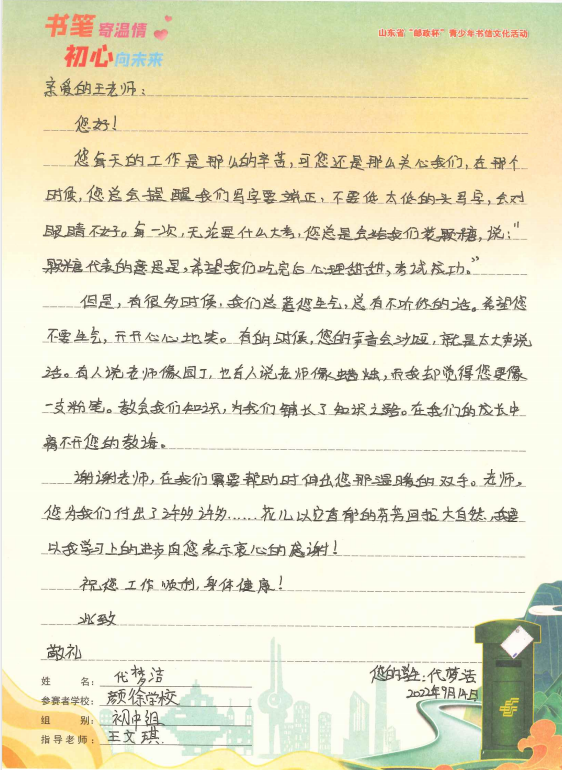 书笔寄温情
初心向未来
山东省“邮政杯”青少年书信文化活动
亲爱的王老师：
您好！
您每天的工作是那么的辛苦，可您还是那么关心我们，在那个
时候，您总会提醒我们写字要端正，不要低太低的头写字，会对
眼睛不好。每一次，无论是什么大考，您总是会给我们发颗糖，说：“
颗糖代表的意思是，希望我们吃完后心理甜甜，考试成功。”
但是，有很多时候，我们总惹您生气，总有不听你的话。希望您
不要生气，开开心心地笑。有的时候，您的声音会沙哑，就是太大声说
话。有人说老师像园丁，也有人说老师像蜡烛，而我却觉得您更像
一支粉笔。教会我们知识，为我们铺长了知识之路。在我们的成长中
离不开您的教诲。
谢谢老师，在我们需要帮助时伸出您那温暖的双手。老师。
您为我们付出了许多许多……花儿以它育有的芬芳回报大自然，我要
以我学习上的进步向您表示衷心的感谢！
祝您工作顺利，身体健康！
此致
敬礼
您的学生：代梦洁
2022年9月14日
姓 名：代梦洁
参赛者学校：颜徐学校
组 别：初中组
指导老师：王文琪